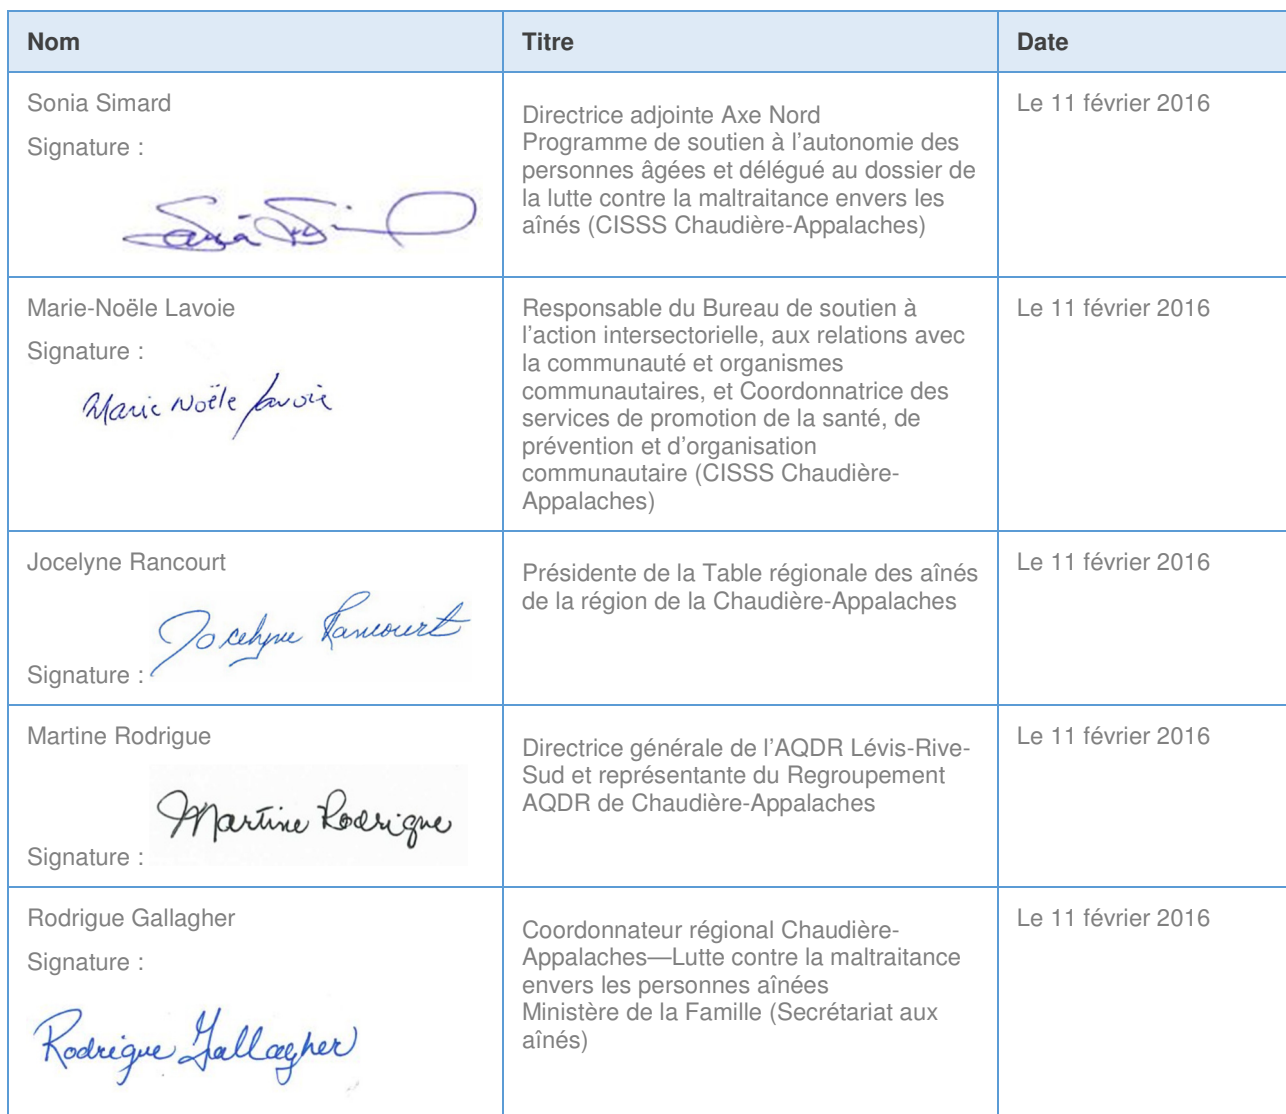 Nom
Titre
Date
Sonia Simard
Signature :
Sonia Simard
Directrice adjointe Axe Nord
Programme de soutien à l'autonomie des
personnes âgées et délégué au dossier de
la lutte contre la maltraitance envers les
aînés (CISSS Chaudière-Appalaches)
Le 11 février 2016
Marie-Noële Lavoie
Signature :
Marie Noële Lavoie
Responsable du Bureau de soutien à
l'action intersectorielle, aux relations avec
la communauté et organismes
communautaires, et Coordonnatrice des
services de promotion de la santé, de
prévention et d'organisation
communautaire (CISSS Chaudière-
Appalaches)
Le 11 février 2016
Jocelyne Rancourt
Jocelyne Rancourt
Signature :
Présidente de la Table régionale des aînés
de la région de la Chaudière-Appalaches
Le 11 février 2016
Martine Rodrigue
Martine Rodrigue
Signature :
Directrice générale de l'AQDR Lévis-Rive-
Sud et représentante du Regroupement
AQDR de Chaudière-Appalaches
Le 11 février 2016
Rodrigue Gallagher
Signature :
Rodrigue Gallagher
Coordonnateur régional Chaudière-
Appalaches—Lutte contre la maltraitance
envers les personnes aînées
Ministère de la Famille (Secrétariat aux
aînés)
Le 11 février 2016